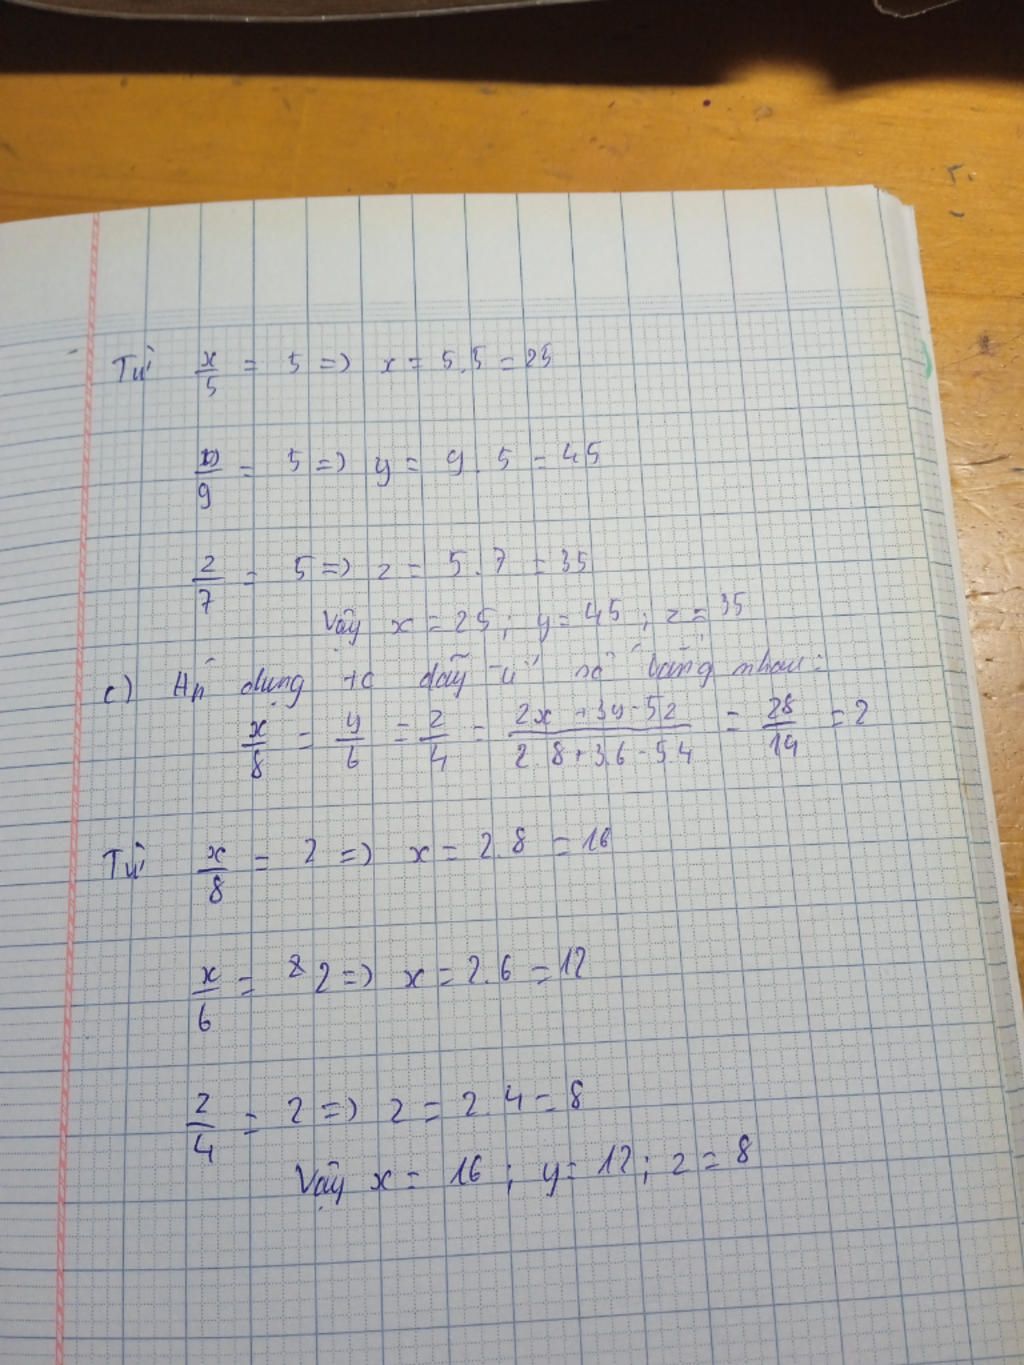 Từ x/5 = 5 => x = 5.5 = 25
/9 = 5 => y = 9.5 = 45
z/7 = 5 => z = 5.7 = 35
Vậy x = 25; y = 45; z = 35
c) Áp dụng t/c dãy tỉ số bằng nhau:
x/8 = y/6 = z/4 = 2x+3y-5z/2.8+3.6-5.4 = 28/14 = 2
Từ x/8 = 2 => x = 2.8 = 16
x/6 = 2 => x = 2.6 = 12
z/4 = 2 => z = 2.4 = 8
Vậy x = 16; y = 12; z = 8